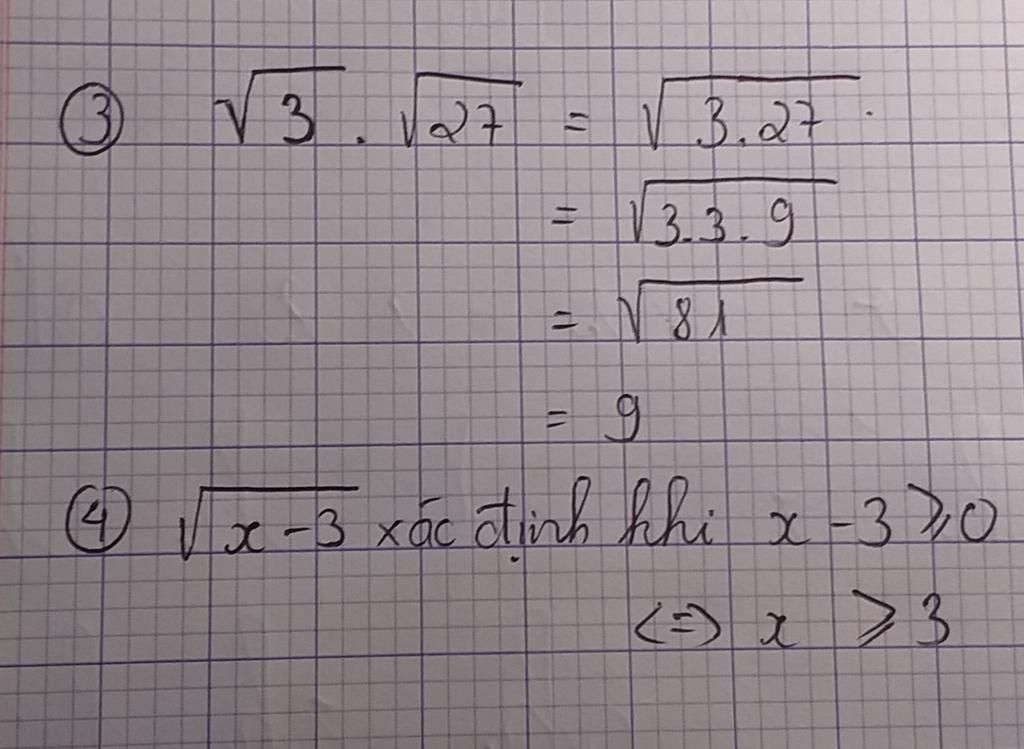 ③ √3 . √27 = √3.27
= √3.3.9
= √81
= 9
④ √x-3 xác định khi x - 3 ⩾ 0
<=> x ⩾ 3